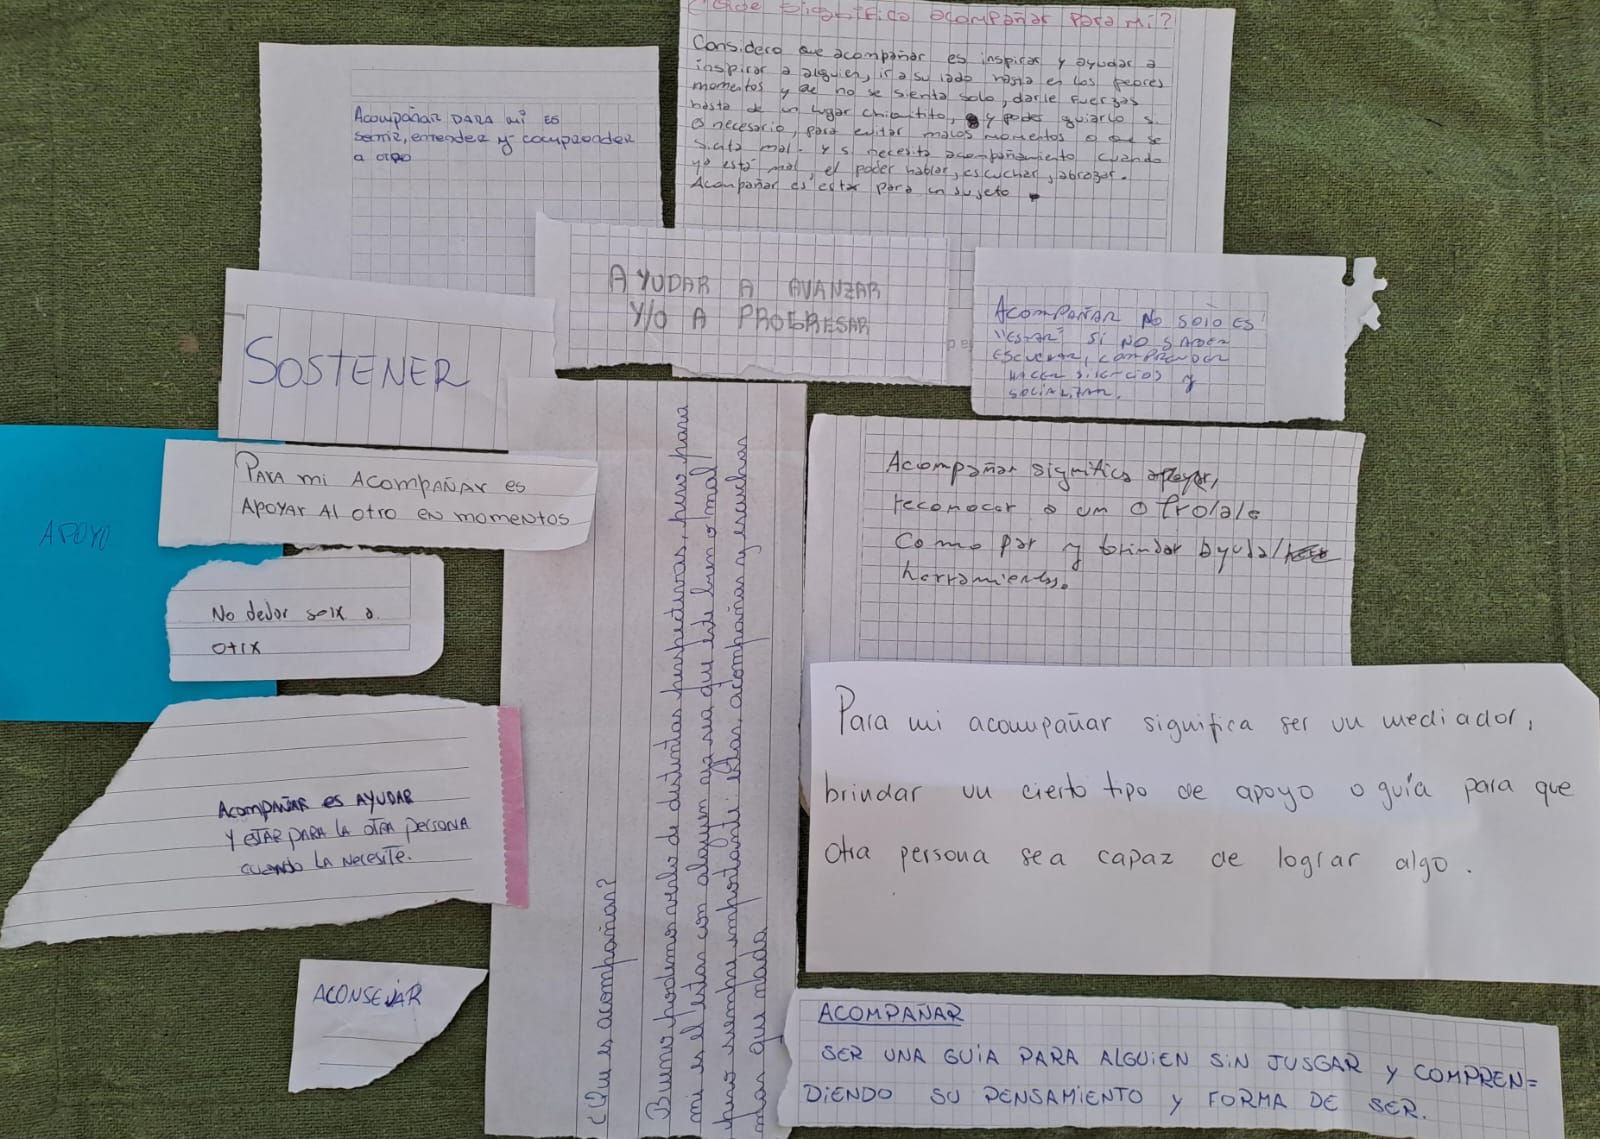 ¿Que significa acompañar para mi?
Considero que acompañar es inspirar y ayudar a
inspirar a alguien, ir a su lado hasta en los peores
momentos y de no se sienta solo, darle fuerzas
hasta de un lugar chiquitito, y poder guiarlo si
es necesario, para evitar malos momentos o que se
sienta mal. Y si necesita acompañamiento cuando
ya está mal, el poder hablar, escuchar, abrazar.
Acompañar es estar para un sujeto
Acompañar PARA mi es
sentir, entender y comprender
a otro
AYUDAR A AVANZAR
Y/O A PROGRESAR
ACOMPAÑAR NO SOLO ES
"ESTAR" SI NO SABER
ESCUCHAR, COMPRENDER
HACER SILENCIOS y
SOCIALIZAR.
SOSTENER
PARA mi ACOMPAÑAR es
APOYAR AL OTRO EN MOMENTOS
APOYO
No dejar solx a
otrx
Acompañar significa apoyar,
reconocer a un otro/a/e
como par y brindar ayuda/
herramientas.
¿Que es acompañar?
Bueno podemos verlo de distintas perspectivas, pero para
mi es el estar con alguien ya sea que esté bien o mal
pero siempre importante: estar, acompañar y escuchar
mas que nada
Para mi acompañar significa ser un mediador,
brindar un cierto tipo de apoyo o guía para que
otra persona sea capaz de lograr algo.
Acompañar es AYUDAR
Y ESTAR PARA LA OTRA PERSONA
CUANDO LA NECESITE.
ACONSEJAR
ACOMPAÑAR
SER UNA GUÍA PARA ALGUIEN SIN JUSGAR Y COMPREN=
DIENDO SU PENSAMIENTO Y FORMA DE SER.